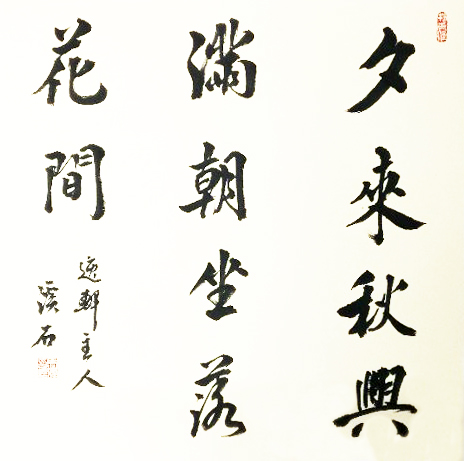 夕來秋興
滿朝坐落
花間
逸軒主人
石